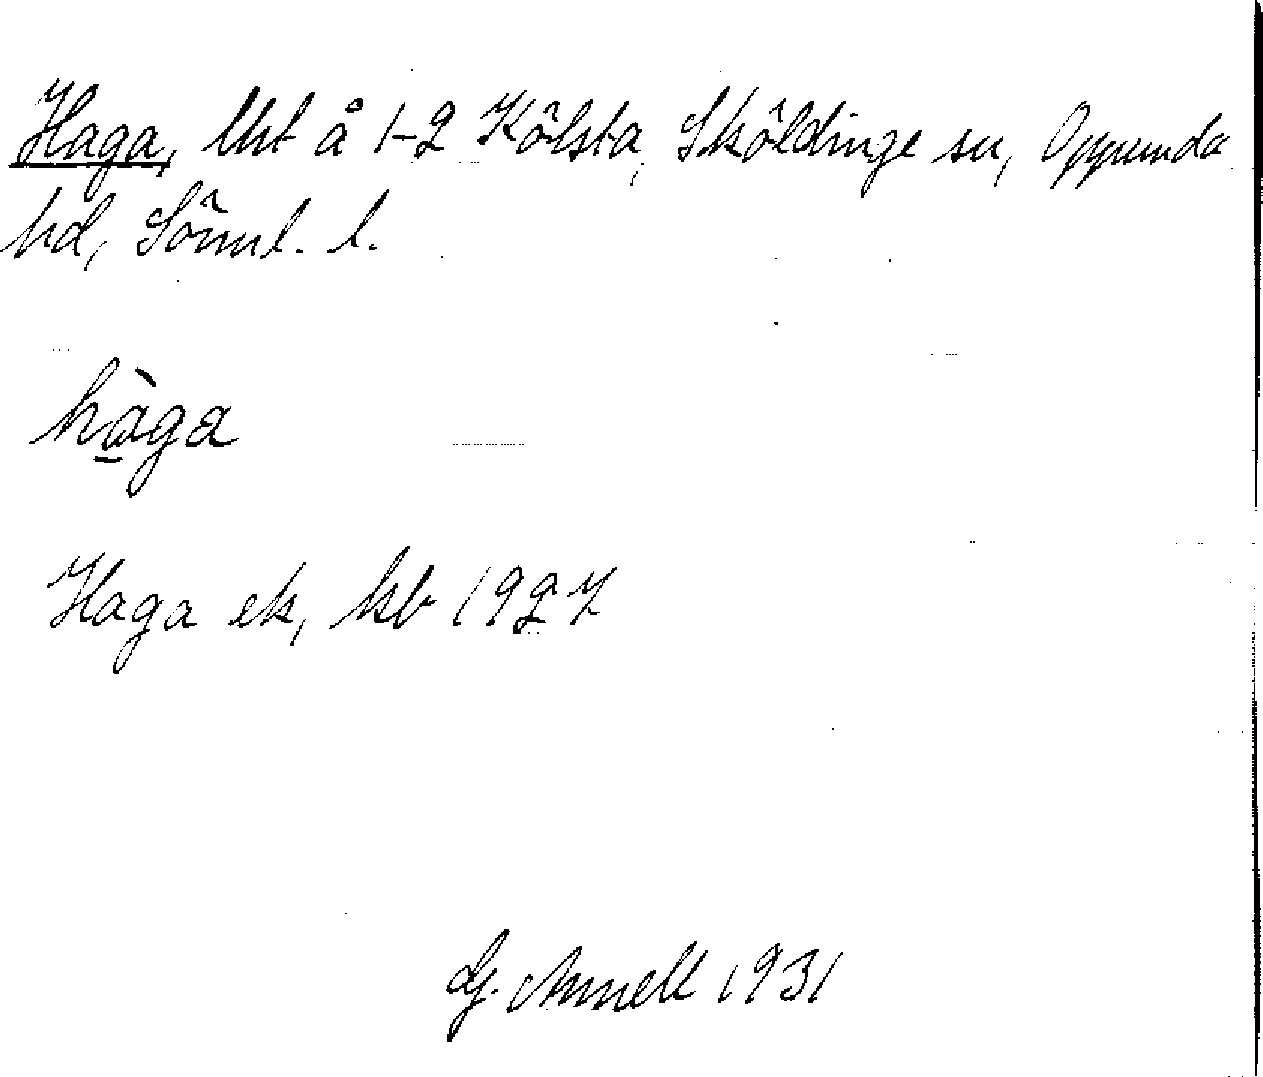 Haga, lht å 1-2 Kölsta, Sköldinge sn, Oppunda
hd, Sörml. l.
hàga
Haga ek, kb 1927
G. Annell 1931